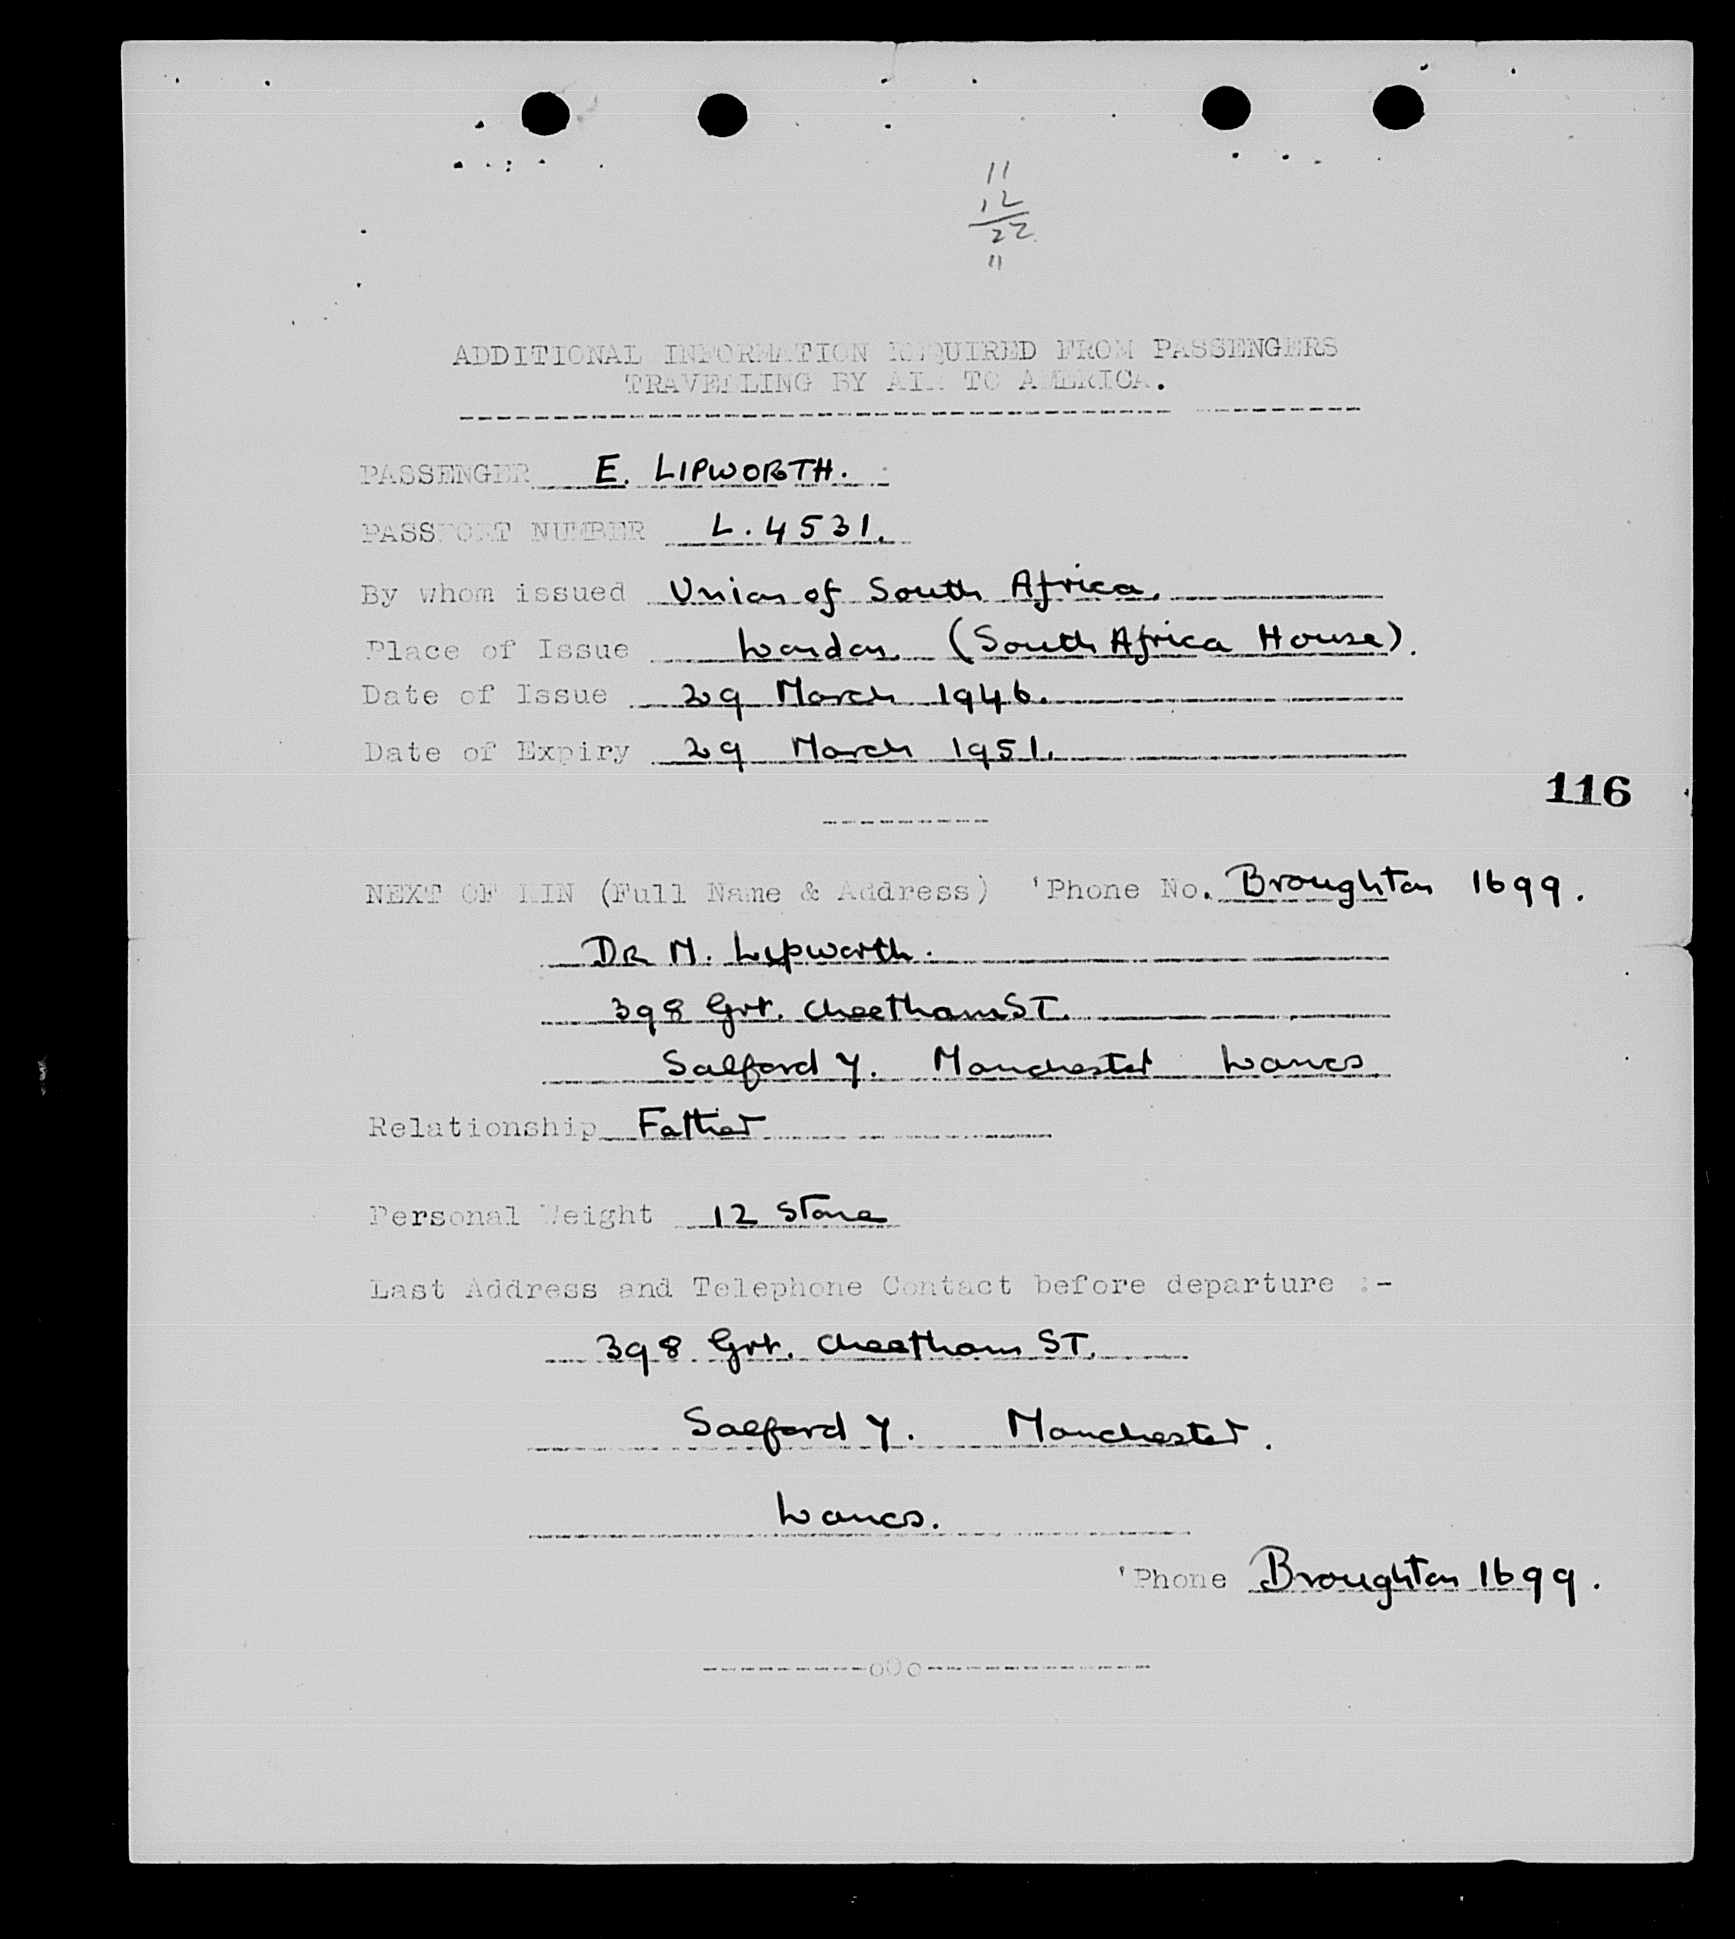 11
12
22
"
ADDITIONAL INFORMATION REQUIRED FROM PASSENGERS
TRAVELLING BY AIR TO AMERICA.
PASSENGER E. LIPWORTH.
PASSPORT NUMBER L.4531.
By whom issued Union of South Africa.
Place of Issue London (South Africa House).
Date of Issue 29 March 1946.
Date of Expiry 29 March 1951.
116
NEXT OF KIN (Full Name & Address) 'Phone No. Broughton 1699.
DR M. Lipworth.
398 Grt. Cheetham ST.
Salford 7. Manchester Lancs
Relationship Father
Personal Weight 12 stone
Last Address and Telephone Contact before departure :-
398 Grt. Cheetham ST.
Salford 7. Manchester.
Lancs.
'Phone Broughton 1699.
-----------oOo---------------